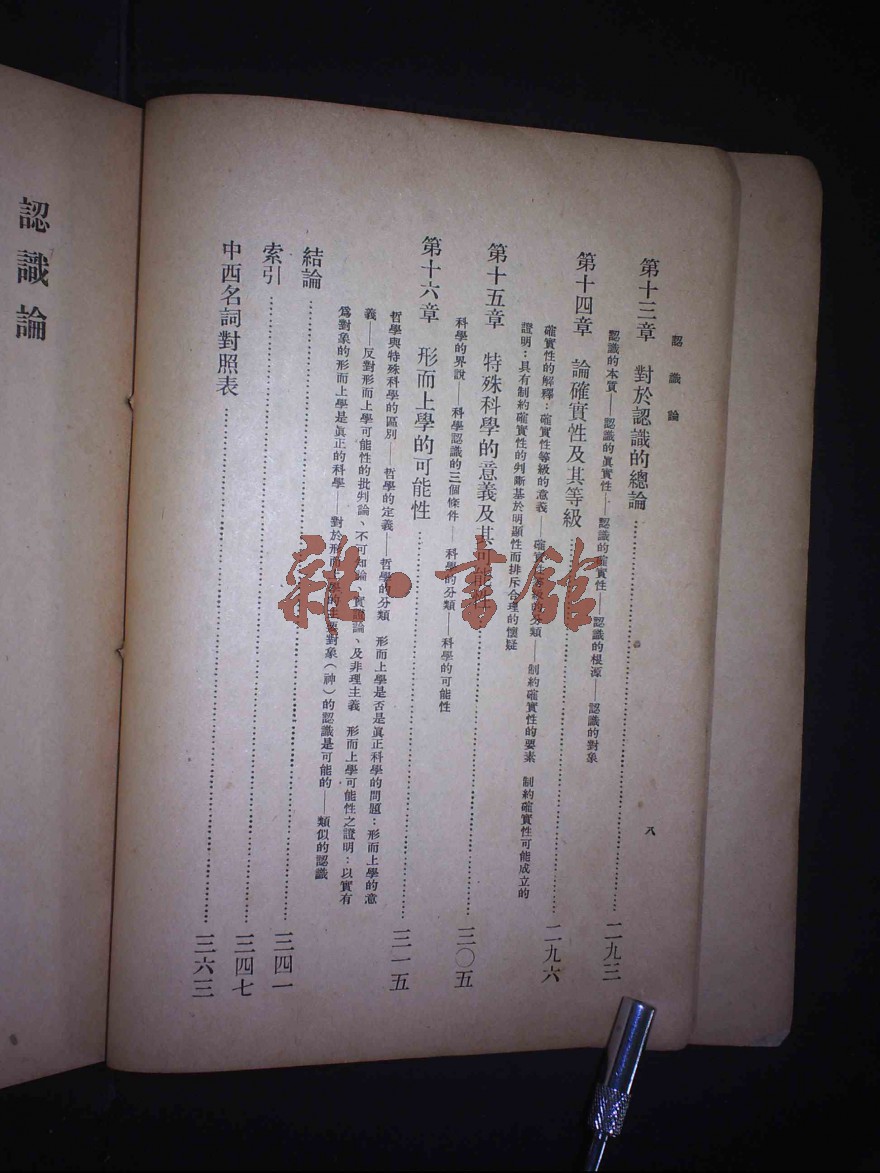 認識論
八
第十三章 對於認識的總論……二九三
認識的本質——認識的眞實性——認識的確實性——認識的根源——認識的對象
第十四章 論確實性及其等級……二九六
確實性的解釋：確實性等級的意義——確實性等級的分類——制約確實性的要素 制約確實性可能成立的
證明：具有制約確實性的判斷基於明顯性而排斥合理的懷疑
第十五章 特殊科學的意義及其可能性……三〇五
科學的界說——科學認識的三個條件——科學的分類——科學的可能性
第十六章 形而上學的可能性……三一五
哲學與特殊科學的區別——哲學的定義——哲學的分類 形而上學是否是眞正科學的問題：形而上學的意
義——反對形而上學可能性的批判論、不可知論、實證論、及非理主義 形而上學可能性之證明：以實有
爲對象的形而上學是眞正的科學——對於形而上學的主要對象（神）的認識是可能的——類似的認識
結論……三四一
索引……三四七
中西名詞對照表……三六三
認識論
雜·書館